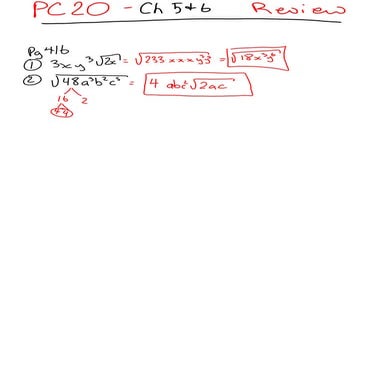 PC20 - Ch 5+6 Review
Pg 416
① 3xy³√2x = √233xxxy³y³ = √18x³y⁶
② √48a³b²c⁵ = 4abc²√2ac
16 2
4 4